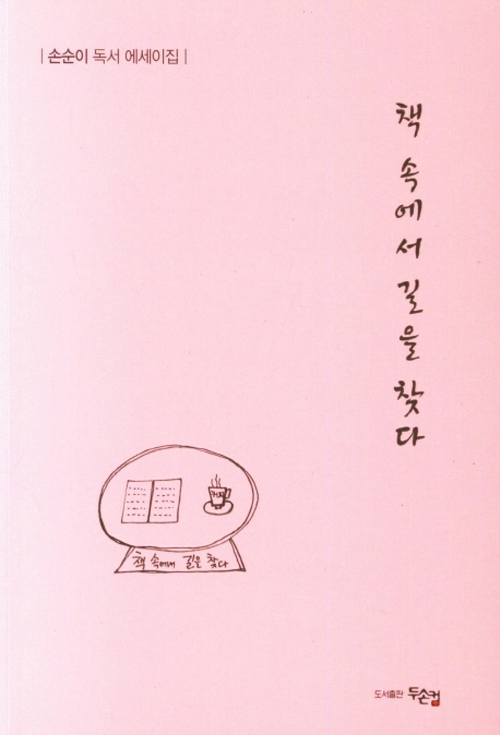 | 손순이 독서 에세이집 |
책 속에서 길을 찾다
커피
책 속에서 길을 찾다
도서출판 두손컴